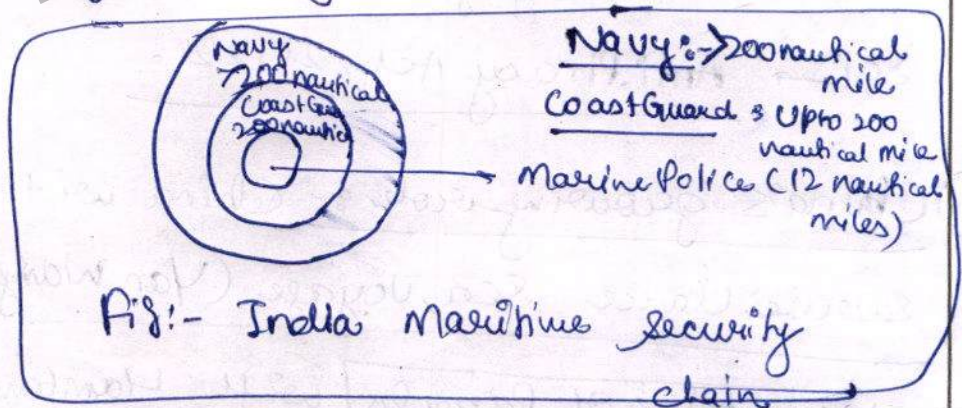 Navy
>200 nautical
Coast Guard
200 nautical
Navy:->200 nautical
mile
Coast Guard : Upto 200
nautical mile
Marine Police (12 nautical
miles)
Fig:- India Maritime security
chain